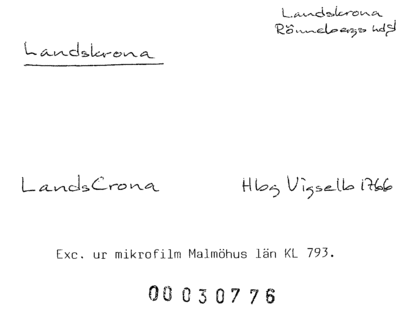 Landskrona
Rönnebergs hd
Landskrona
LandsCrona Hbg Vigselb 1766
Exc. ur mikrofilm Malmöhus län KL 793.
00 030776